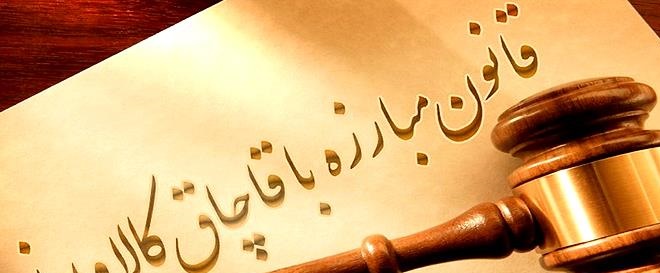 قانون مبارزه با قاچاق کالا و